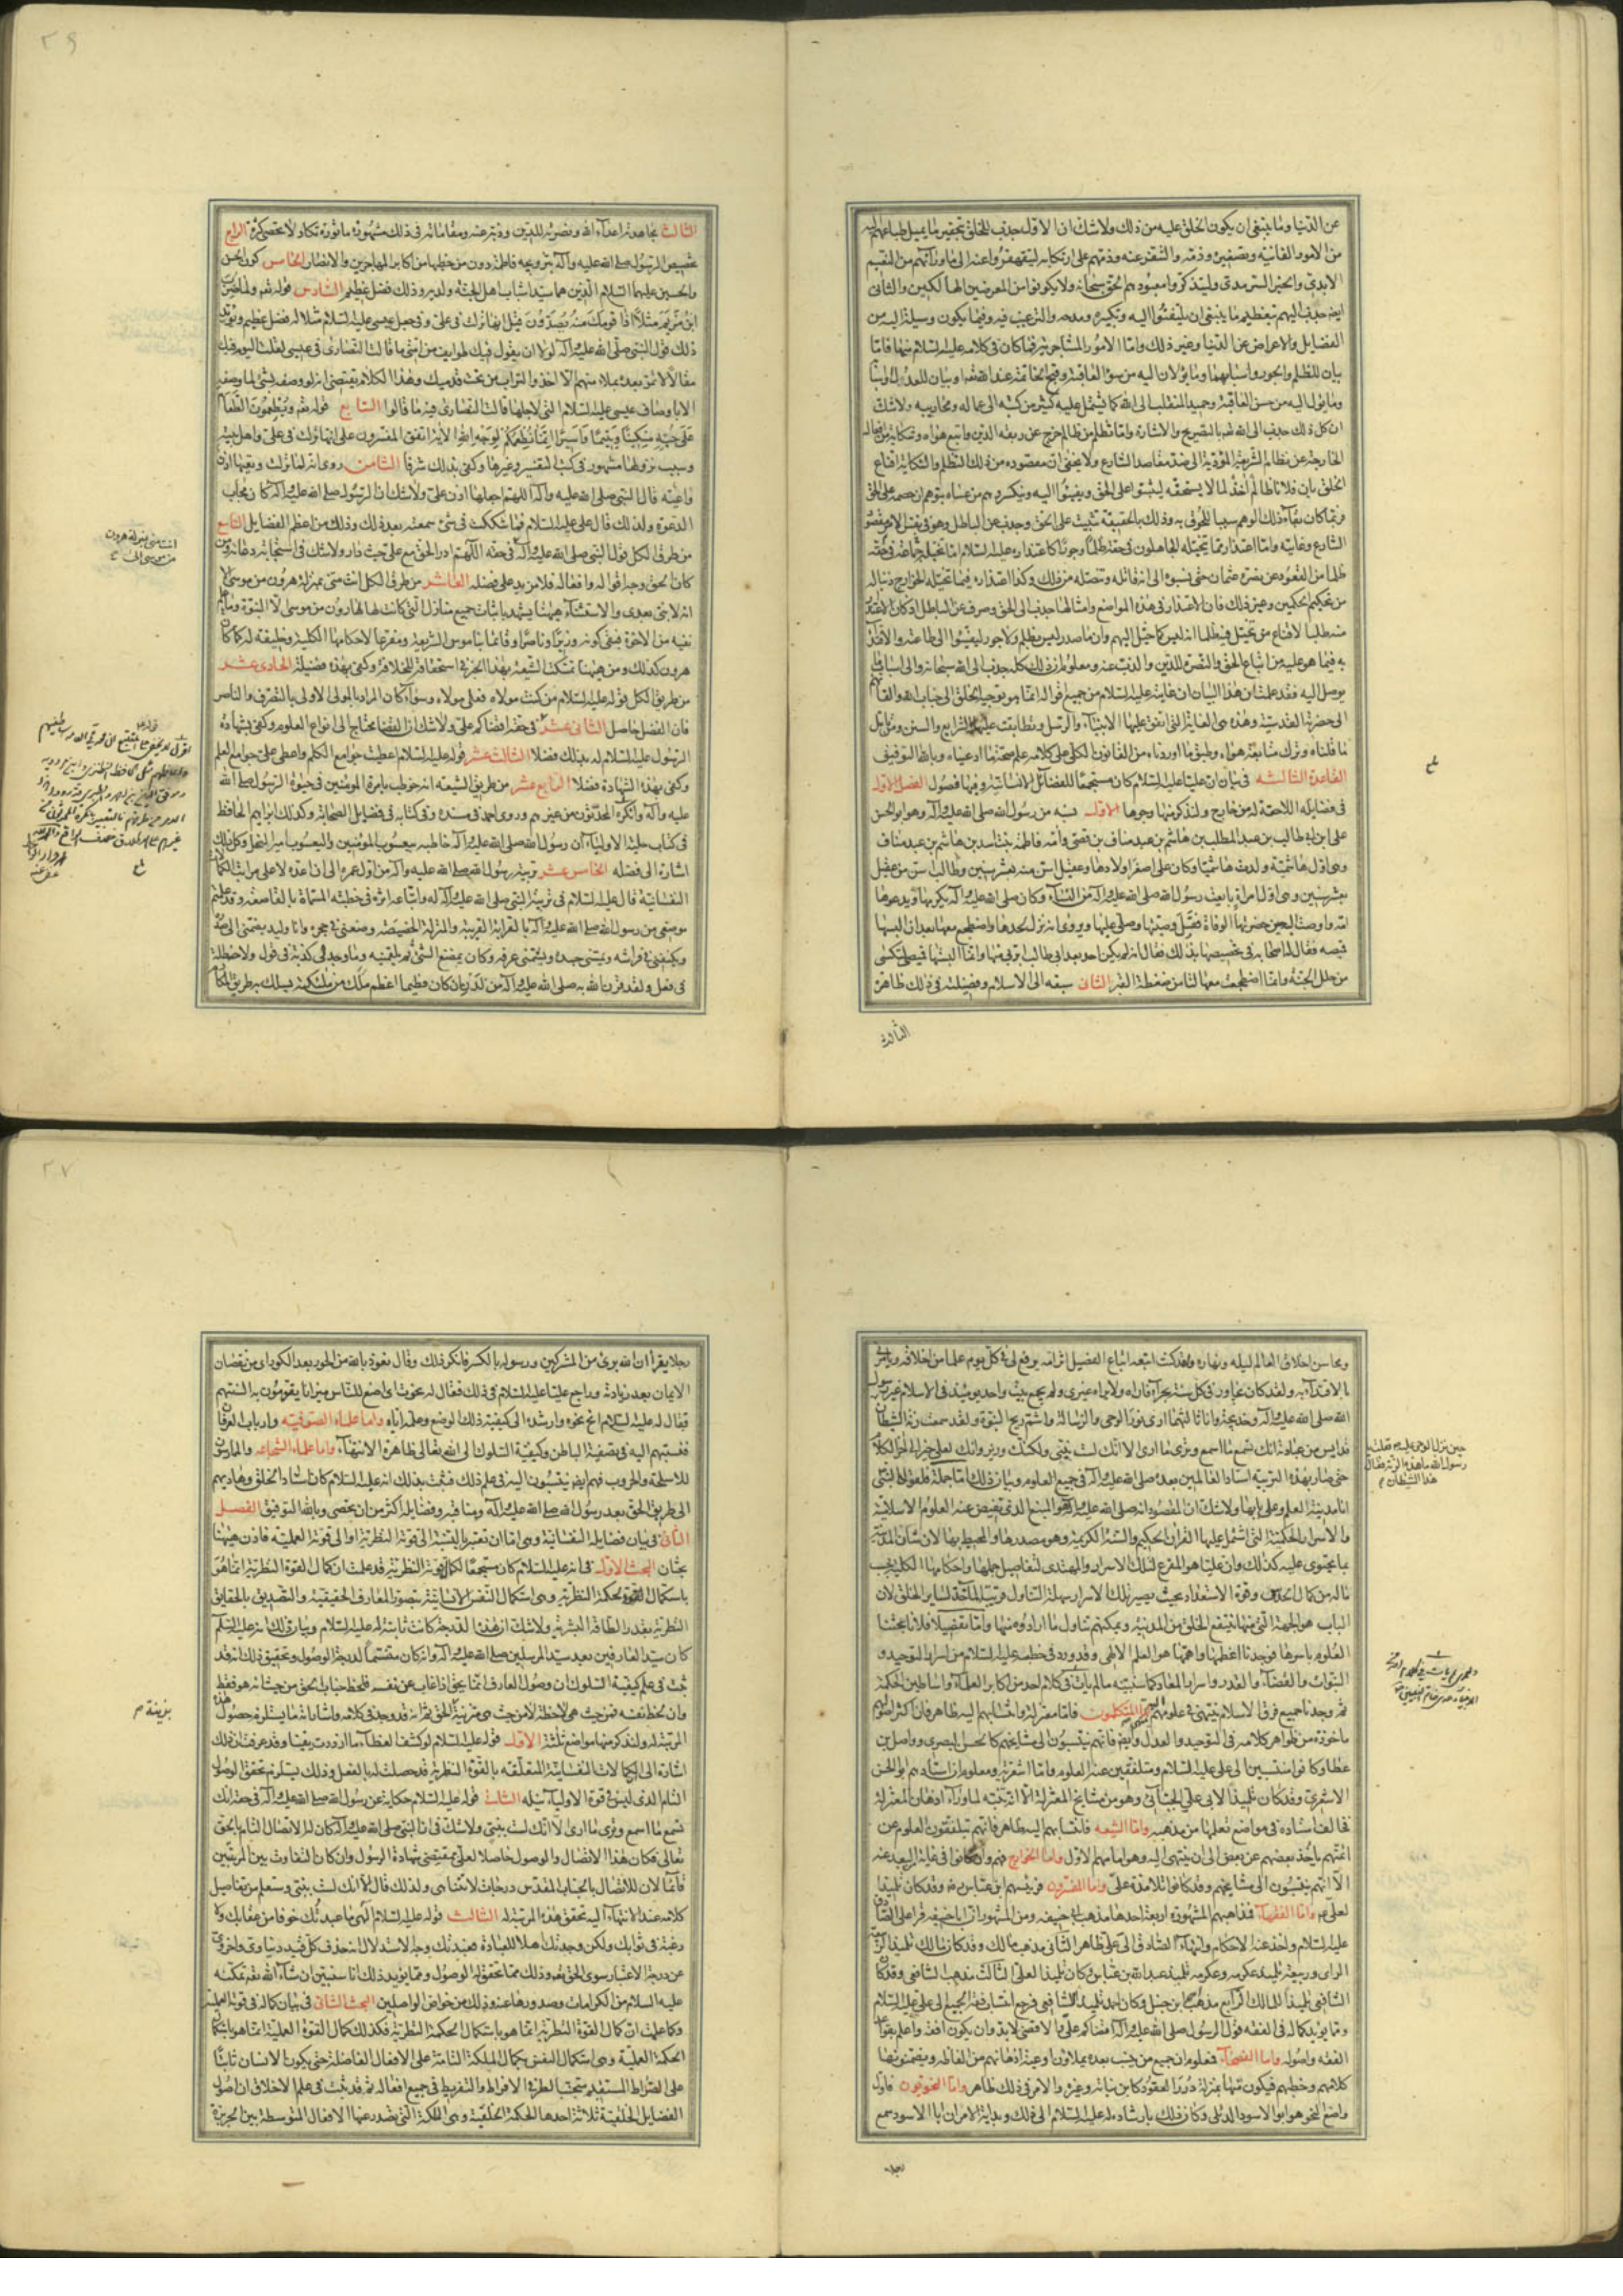 عن الدنيا وما ينبغى ان يكون الخلق عليه من ذلك ولاشك ان الاول جذب للخلق بتحقير ما يميل طباعهم اليه
من الامور الفانية وتصغيره وذمه والتنفير عنه وذمهم على ارتكابه ليتقهقروا عنه الى ما وراءهم من النعيم
الابدى والخير السرمدى وليتذكروا معبودهم الحق سبحانه ولا يكونوا من المعرضين الهالكين والثانى
ايضا جذب اليهم بتعظيم ما ينبغى ان يلتفتوا اليه وتكبيره ومدحه والترغيب فيه وفيما يكون وسيلة اليه من
الفضايل والاعراض عن الدنيا وغير ذلك واما الامور المشاجرية فما كان فى كلامه عليه السلام منها فاما
بيان للظلم والجور واسبابهما وما يؤلان اليه من سوء العاقبة وقبح الخاتمة عند الله تعالى او بيان للعدل
وما يؤل اليه من حسن العاقبة وحميد المنقلب الى الله كما يشتمل عليه كثير من كتبه الى عماله ومحاربيه ولاشك
ان كل ذلك جذب الى الله تعالى بالتصريح والاشارة واما تظلم من ظالم خرج عن ربقة الدين واتبع هواه وشكاية من افعاله
الخارجة عن نظام الشريعة المؤدية الى ضد مقاصد الشارع ولا يخفى ان مقصوده من ذلك التظلم والشكاية اقناع
الخلق بان فلانا ظالم اخذ لما لا يستحقه ليثبتوا على الحق
فربما كان بقاء ذلك الوهم سببا للحوق به وذلك بالحقيقة تثبيت على الحق وجذب عن الباطل وهو فى نفس الامر مقصود
الشارع وغايته واما اعتذار مما يتخيله الجاهلون فى حقه ظلما وجورا كاعتذاره عليه السلام مما تخيل
ظلما من القعود عن نصرة عثمان حتى نسبوه الى انه قاتله وتنصله من ذلك وكذا اعتذاره فيما تخيلته الخوارج ذنبا له
من تحكيم الحكمين وغير ذلك فان الاعتذار فى هذه المواضع وامثالها جذب الى الحق وصرف عن الباطل
يوصل اليه فقد علمت ان هذا البيان ان غايته عليه السلام من جميع اقواله انما هو توجيه الخلق الى جناب الله والقائهم
الى حضرته القدسية وهذه هى الغاية التى اتفق عليها الانبياء والرسل وتطابقت عليها الشرايع والسنن
ما قلناه وترك متابعة هواه وطبق ما اوردناه من القانون الكلى على كلامه علم صحة ما ادعيناه وبالله التوفيق
القاعدة الثالثة فى بيان ان عليا عليه السلام كان مستجمعا للفضائل الانسانية وفيها فصول الفصل الاول
فى فضايله اللاحقة له من خارج ولنذكر منها وجوها الاول نسبه من رسول الله صلى الله عليه وآله وهو ابو الحسن
على ابن ابى طالب بن عبد المطلب بن هاشم بن عبد مناف بن قصى وامه فاطمة بنت اسد بن هاشم بن عبد مناف
وهى اول هاشمية ولدت هاشميا وكان على اصغر اولادها وعقيل اسن منه بعشر سنين وطالب اسن من عقيل
بعشر سنين وهى اول امراة بايعت رسول الله صلى الله عليه وآله من النساء وكان صلى الله عليه وآله يكرمها ويدعوها
امه واوصت اليه حين حضرتها الوفاة فقبل وصيتها وصلى عليها وروى انه نزل لحدها واضطجع معها بعد ان البسها
قميصه فقال له اصحابه فى تخصيصها بذلك فقال انه لم يكن احد بعد ابى طالب ابر بى منها وانما البستها قميصى لتكسى
من حلل الجنة وانما اضطجعت معها لتامن ضغطة القبر الثانى سبقه الى الاسلام وفضيلته فى ذلك ظاهرة
الثالث
٢٦
الثالث مجاهدته اعداء الله ونصرته للدين وذبه عنه ومقاماته فى ذلك مشهورة ماثورة تكاد لا تحصى كثرة الرابع
تخصيص الرسول صلى الله عليه وآله بتزويجه فاطمة دون من خطبها من اكابر المهاجرين والانصار الخامس كون الحسن
والحسين عليهما السلام الذين هما سيدا شباب اهل الجنة ولديه وذلك فضل عظيم السادس قوله تعالى ولما ضرب
ابن مريم مثلا اذا قومك منه يصدون قيل انها نزلت فى على وفى جعل عيسى عليه السلام مثلا له فضل عظيم ويؤيد
ذلك قول النبى صلى الله عليه وآله لولا ان يقول فيك طوايف من امتى ما قالت النصارى فى عيسى لقلت اليوم فيك
مقالا لا تمر بعده بملاء منهم الا اخذوا التراب من تحت قدميك وهذا الكلام يقتضى انه لو وصفه لشىء لما وصفه
الا باوصاف عيسى عليه السلام التى لاجلها قالت النصارى فيه ما قالوا السابع قوله تعالى ويطعمون الطعام
على حبه مسكينا ويتيما واسيرا انما نطعمكم لوجه الله الآية اتفق المفسرون على انها نزلت فى على واهل بيته
وسبب نزولها مشهور فى كتب التفسير وغيرها وكفى بذلك شرفا الثامن روى انه لما نزلت وتعيها اذن
واعية قال النبى صلى الله عليه وآله اللهم اجعلها اذن على ولاشك ان الرسول صلى الله عليه وآله كان مجاب
الدعوة ولذلك قال على عليه السلام فما شككت فى شىء سمعته بعد ذلك وذلك من اعظم الفضايل التاسع
من طرق الكل قول النبى صلى الله عليه وآله فى حقه اللهم ادر الحق مع على حيث دار ولاشك فى استجابة دعائه ومن
كان الحق وجه اقواله وافعاله فلا مزيد على فضله العاشر من طرق الكل انت منى بمنزلة هرون من موسى الا
انه لا نبى بعدى والاستثناء هيهنا يشهد باثبات جميع منازل التى كانت لها لهارون من موسى الا النبوة
هرون كذلك ومن هيهنا تمسكت الشيعة بهذا الخبر فى استحقاقه للخلافة وكفى بهذه فضيلة الحادى عشر
من طريق الكل قوله عليه السلام من كنت مولاه فعلى مولاه وسواء كان المراد بالمولى الاولى بالتصرف والناصر
فان الفضل حاصل الثانى عشر فى حقه اقضاكم على ولاشك ان القضا يحتاج الى انواع العلوم وكفى بشهادة
الرسول عليه السلام له بذلك فضلا الثالث عشر قوله عليه السلام اعطيت جوامع الكلم واعطى على جوامع العلم
وكفى بهذه الشهادة فضلا الرابع عشر من طريق الشيعة انه خوطب بامرة المومنين فى حيوة الرسول صلى الله
عليه وآله وانكره المحدثون من غيرهم وروى احمد فى مسنده وفى كتابه فى فضايل الصحابة وكذلك ابراهيم الحافظ
فى كتاب حلية الاولياء ان رسول الله صلى الله عليه وآله خاطبه بيعسوب المؤمنين واليعسوب امير النحل وكل ذلك
اشارة الى فضله الخامس عشر تربية رسول الله صلى الله عليه وآله من اول عمره الى ان اعده لاعلى مراتب الكمالات
النفسانية قال عليه السلام فى تربية النبى صلى الله عليه وآله له واتباعه اثره فى خطبته المسماة بالقاصعة وقد علمتم
موضعى من رسول الله صلى الله عليه وآله بالقرابة القريبة والمنزلة الخصيصة وضعنى فى حجره وانا وليد يضمنى الى صدره
ويكنفنى فى فراشه ويمسنى جسده ويشمنى عرفه وكان يمضغ الشىء ثم يلقمنيه وما وجد لى كذبة فى قول ولا خطلة
فى فعل ولقد قرن الله به صلى الله عليه وآله من لدن ان كان فطيما اعظم ملك من ملئكته يسلك به طريق المكارم
انت منى بمنزلة هرون
من موسى الى
ومحاسن اخلاق العالم ليله ونهاره ولقد كنت اتبعه اتباع الفصيل اثر امه يرفع لى فى كل يوم علما من اخلاقه ويامرنى
بالاقتداء به ولقد كان يجاور فى كل سنة بحراء فاراه ولا يراه غيرى ولم يجمع بيت واحد يومئذ فى الاسلام غير رسول
الله صلى الله عليه وآله وخديجة وانا ثالثهما ارى نور الوحى والرسالة واشم ريح النبوة ولقد سمعت رنة الشيطان
قد ايس من عبادته انك تسمع ما اسمع وترى ما ارى الا انك لست بنبى ولكنك وزير وانك لعلى خير الى آخر الكلام
حتى صار بهذه التربية استاد العالمين بعده صلى الله عليه وآله فى جميع العلوم وبيان ذلك اما جملة فلقول النبى
انا مدينة العلم وعلى بابها ولاشك ان المقصود انه صلى الله عليه وآله هو المنبع الذى تفيض عنه العلوم الاسلامية
والاسرار الحكمية التى اشتمل عليها القرآن الحكيم والسنة الكريمة وهو مصدرها والمحيط بها لان شان المدينة
ما يحتوى عليه كذلك وان عليا هو المفزع لتلك الاسرار والمهتدى لتفاصيل جملها واحكامها الكلية بحسب
ماله من كمال الحدس وقوة الاستعداد بحيث يصير تلك الاسرار سهلة التناول قريبة المأخذ لساير الخلق لان
الباب هو الجهة التى منها ينتفع الخلق من المدينة ويمكنهم تناول ما ارادوه منها واما تفصيلا فلانا بحثنا
العلوم باسرها فوجدنا اعظمها واهمها هو العلم الالهى وقد ورد فى خطبه عليه السلام من اسرار التوحيد و
النبوات والقضاء والقدر واسرار المعاد كما سنبينه ما لم يات فى كلام احد من اكابر العلماء واساطين الحكمة
ثم وجدنا جميع فرق الاسلام ينتهى فى علومهم اليه اما المتكلمون فاما معتزلة وانتسابهم اليه ظاهر فان اكثر اصولهم
ماخوذة من ظواهر كلامه فى التوحيد والعدل وايضا فانهم ينتسبون الى مشايخهم كالحسن البصرى وواصل بن
عطا وكانوا منتسبين الى على عليه السلام ومتلقفين عنه العلوم واما اشعرية ومعلوم ان استادهم ابو الحسن
الاشعرى وقد كان تلميذا لابى على الجبائى وهو من مشايخ المعتزلة
فخالف استاده فى مواضع تعلمها من مذهبه واما الشيعة فانتسابهم اليه ظاهر فانهم يتلقفون العلوم عن
ائمتهم ياخذ بعضهم عن بعض الى ان ينتهى اليه وهو امامهم الاول واما الخوارج فهم وان كانوا فى غاية البعد عنه
الا انهم ينتسبون الى مشايخهم وقد كانوا تلامذة على واما المفسرون فرئيسهم ابن عباس وقد كان تلميذا
لعلى واما الفقهاء فمذاهبهم المشهورة اربعة احدها مذهب ابى حنيفه ومن المشهور ان ابا حنيفه قرا على الصادق
عليه السلام واخذ عنه الاحكام وانتهاء الصادق الى على ظاهر الثانى مذهب مالك وقد كان مالك تلميذا لربيعة
الراى وربيعة تلميذ عكرمه وعكرمه تلميذ عبد الله بن عباس وكان تلميذا لعلى الثالث مذهب الشافعى وقد كان
الشافعى تلميذا لمالك الرابع مذهب احمد بن حنبل وكان احمد تلميذ الشافعى فرجع انتساب فقه الجميع الى على عليه السلام
ومما يؤيد كماله فى الفقه قول الرسول صلى الله عليه وآله اقضاكم على والاقضى لابد وان يكون افقه واعلم بقواعد
الفقه واصوله واما الفصحاء فمعلوم ان جميع من ينسب بعده يملاون اوعية اذهانهم من الفاظه ويضمنونها
كلامهم وخطبهم فيكون منها بمنزلة درر العقود كابن نباته وغيره والامر فى ذلك ظاهر واما النحويون فاول
واضع للنحو هو ابو الاسود الدئلى وكان ذلك بارشاده له عليه السلام الى ذلك وبداية الامر ان ابا الاسود سمع
حين نزل الوحى عليه فقلت يا
رسول الله ما هذه الرنة فقال
هذا الشيطان
رجلا
٢٧
رجلا يقرأ ان الله برىء من المشركين ورسوله بالكسر فانكر ذلك وقال نعوذ بالله من الحور بعد الكور اى من نقصان
الايمان بعد زيادته وراجع عليا عليه السلام فى ذلك فقال له نحوت ان اضع للناس ميزانا يقومون به السنتهم
فقال له عليه السلام انح نحوه وارشده الى كيفية ذلك الوضع وعلمه اياه واما علماء الصوفية وارباب العرفان
فنسبتهم اليه فى تصفية الباطن وكيفية السلوك الى الله تعالى ظاهرة الانتهاء واما علماء الشجاعة والممارسون
للاسلحة والحروب فهم ايضا ينتسبون اليه فى علم ذلك فثبت بذلك انه عليه السلام كان استاذ الخلق وهاديهم
الى طريق الحق بعد رسول الله صلى الله عليه وآله ومناقبه وفضايله اكثر من ان يحصى وبالله التوفيق الفصل
الثانى فى بيان فضايله النفسانية وهى اما ان تعتبر بالنسبة الى قوته النظرية او الى قوته العملية فاذن هيهنا
بحثان البحث الاول فى انه عليه السلام كان مستجمعا لكمال قوته النظرية قد علمت ان كمال القوة النظرية انما هو
باستكمال القوة بالحكمة النظرية وهى استكمال النفس الانسانية بتصور المعارف الحقيقية والتصديق بالحقايق
النظرية بقدر الطاقة البشرية ولاشك ان هذه الدرجة كانت ثابتة له عليه السلام وبيان ذلك انه عليه السلم
كان سيد العارفين بعد سيد المرسلين صلى الله عليه وآله وانه كان متسنما لدرجة الوصول وتحقيق ذلك انه قد
ثبت فى علم كيفية السلوك ان وصول العارف انما يحق اذا غاب عن نفسه فلحظ جناب الحق من حيث انه هو فقط
وان لحظ نفسه فمن حيث هى لاحظة لا من حيث هى متزينة بزينة الحق ثم انه قد وجد فى كلامه واشاراته ما يستلزم حصول هذه
المرتبة له ولنذكر منها مواضع ثلثة الاول قوله عليه السلام لو كشف الغطاء ما ازددت يقينا وقد عرفت ان ذلك
اشارة الى الكمالات النفسانية المتعلقه بالقوة النظرية قد حصلت له بالفعل وذلك يستلزم تحقق الوصول
التام الذى ليس فى قوة الاولياء نيله الثانى قوله عليه السلام حكاية عن رسول الله صلى الله عليه وآله فى حقه انك
تسمع ما اسمع وترى ما ارى الا انك لست بنبى ولاشك فى ان النبى صلى الله عليه وآله كان له الاتصال التام بالحق
تعالى فكان هذا الاتصال والوصول حاصلا لعلى بمقتضى شهادة الرسول وان كان التفاوت بين المرتبتين
قائما لان للاتصال بالجناب المقدس درجات لا تتناهى ولذلك قال الا انك لست بنبى وستعلم من تفاصيل
كلامه عند الانتهاء اليه تحقق هذه المرتبة له الثالث قوله عليه السلام الهى ما عبدتك خوفا من عقابك ولا
رغبة فى ثوابك ولكن وجدتك اهلا للعبادة فعبدتك وجه الاستدلال انه حذف كل قيد دنياوى واخروى
عن درجة الاعتبار سوى الحق تعالى وذلك مما تحقق له الوصول ومما يؤيد ذلك انا سنبين ان شاء الله تعالى تمكنه
عليه السلام من الكرامات وصدورها عنه وذلك من خواص الواصلين البحث الثانى فى بيان كماله فى قوته العملية
وكما علمت ان كمال القوة النظرية انما هو باستكمال الحكمة النظرية فكذلك كمال القوة العملية انما هو باستكمال
الحكمة العملية وهى استكمال النفس بكمال الملكة التامة على الافعال الفاضلة حتى يكون الانسان ثابتا
على الصراط المستقيم متجنبا لطرفى الافراط والتفريط فى جميع افعاله ثم قد ثبت فى علم الاخلاق ان اصول
الفضايل الخلقية ثلاثة احدها الحكمة الخلقية وهى الملكة التى تصدر عنها الافعال المتوسطة بين الجربزة
بزينة